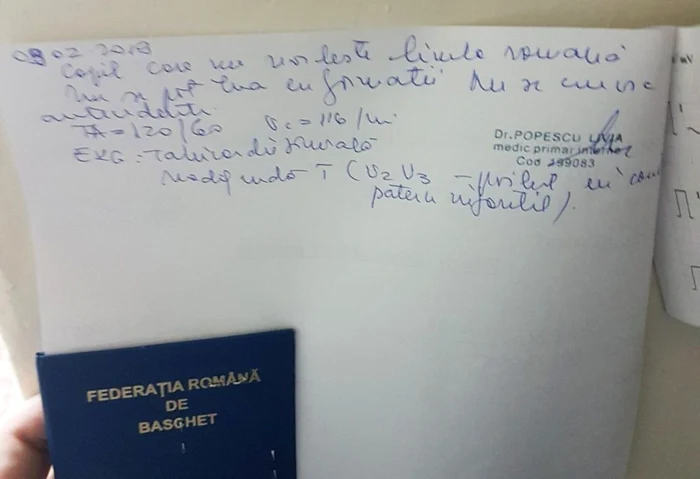 08 02 2018
Copil care nu vorbește limba română
Nu se pot lua informații Nu se cunosc
antecedente
TA = 120/60 = 116 /mi
EKG: Tahicardie sinusală
Modif undă T (V2 V3 - posibil în
patern infantil).
Dr. POPESCU LIVIA
medic primar internist
Cod 299083
FEDERAȚIA ROMÂNĂ
DE
BASCHET
mV